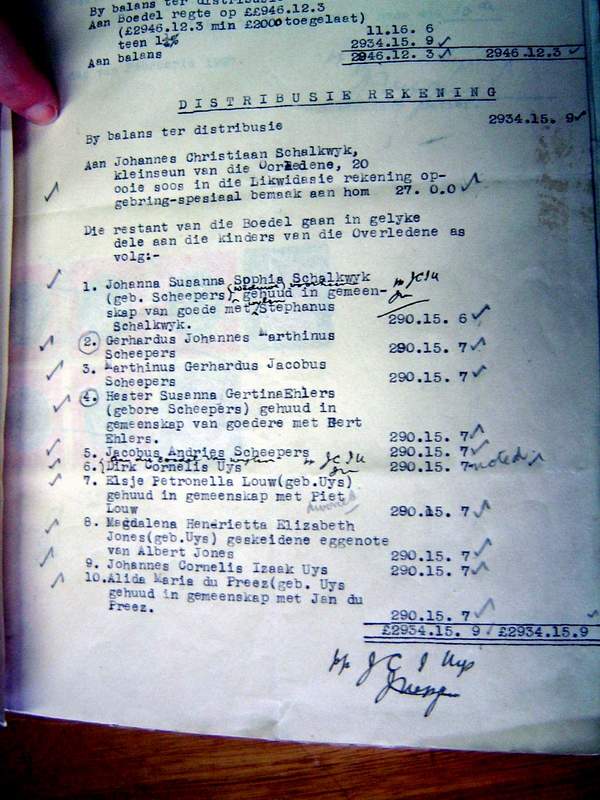 By balans ter distribusie
Aan Boedel regte op ££946.12.3
(£2946.12.3 min £2000 toegelaat)
teen 1¼% 11.16. 6
2934.15. 9
Aan balans 2946.12. 3 2946.12.3
DISTRIBUSIE REKENING
By balans ter distribusie 2934.15. 9
Aan Johannes Christiaan Schalkwyk,
kleinseun van die Oorledene, 20
ooie soos in die Likwidasie rekening op-
gebring-spesiaal bemaak aan hom 27. 0.0
Die restant van die Boedel gaan in gelyke
dele aan die kinders van die Overledene as
volg:-
1. Johanna Susanna Sophia Schalkwyk
(geb. Scheepers) gehuud in gemeen-
skap van goede met Stephanus
Schalkwyk. 290.15. 6
2. Gerhardus Johannes Marthinus
Scheepers 290.15. 7
3. Marthinus Gerhardus Jacobus
Scheepers 290.15. 7
4. Hester Susanna GertinaEhlers
(gebore Scheepers) gehuud in
gemeenskap van goedere met Bert
Ehlers. 290.15. 7
5. Jacobus Andries Scheepers 290.15. 7
6. Dirk Cornelis Uys 290.15. 7 noted
7. Elsje Petronella Louw(geb.Uys)
gehuud in gemeenskap met Piet
Louw 290.15. 7
8. Magdalena Hendrietta Elizabeth
Jones(geb.Uys) geskeidene eggenote
van Albert Jones 290.15. 7
9. Johannes Cornelis Izaak Uys 290.15. 7
10.Alida Maria du Preez(geb. Uys
gehuud in gemeenskap met Jan du
Preez. 290.15. 7
£2934.15. 9 £2934.15.9
pp J C I Uys